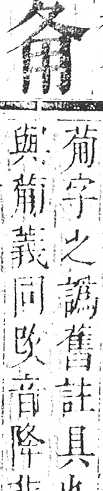 葡字之譌舊註具
與葡義同改音降